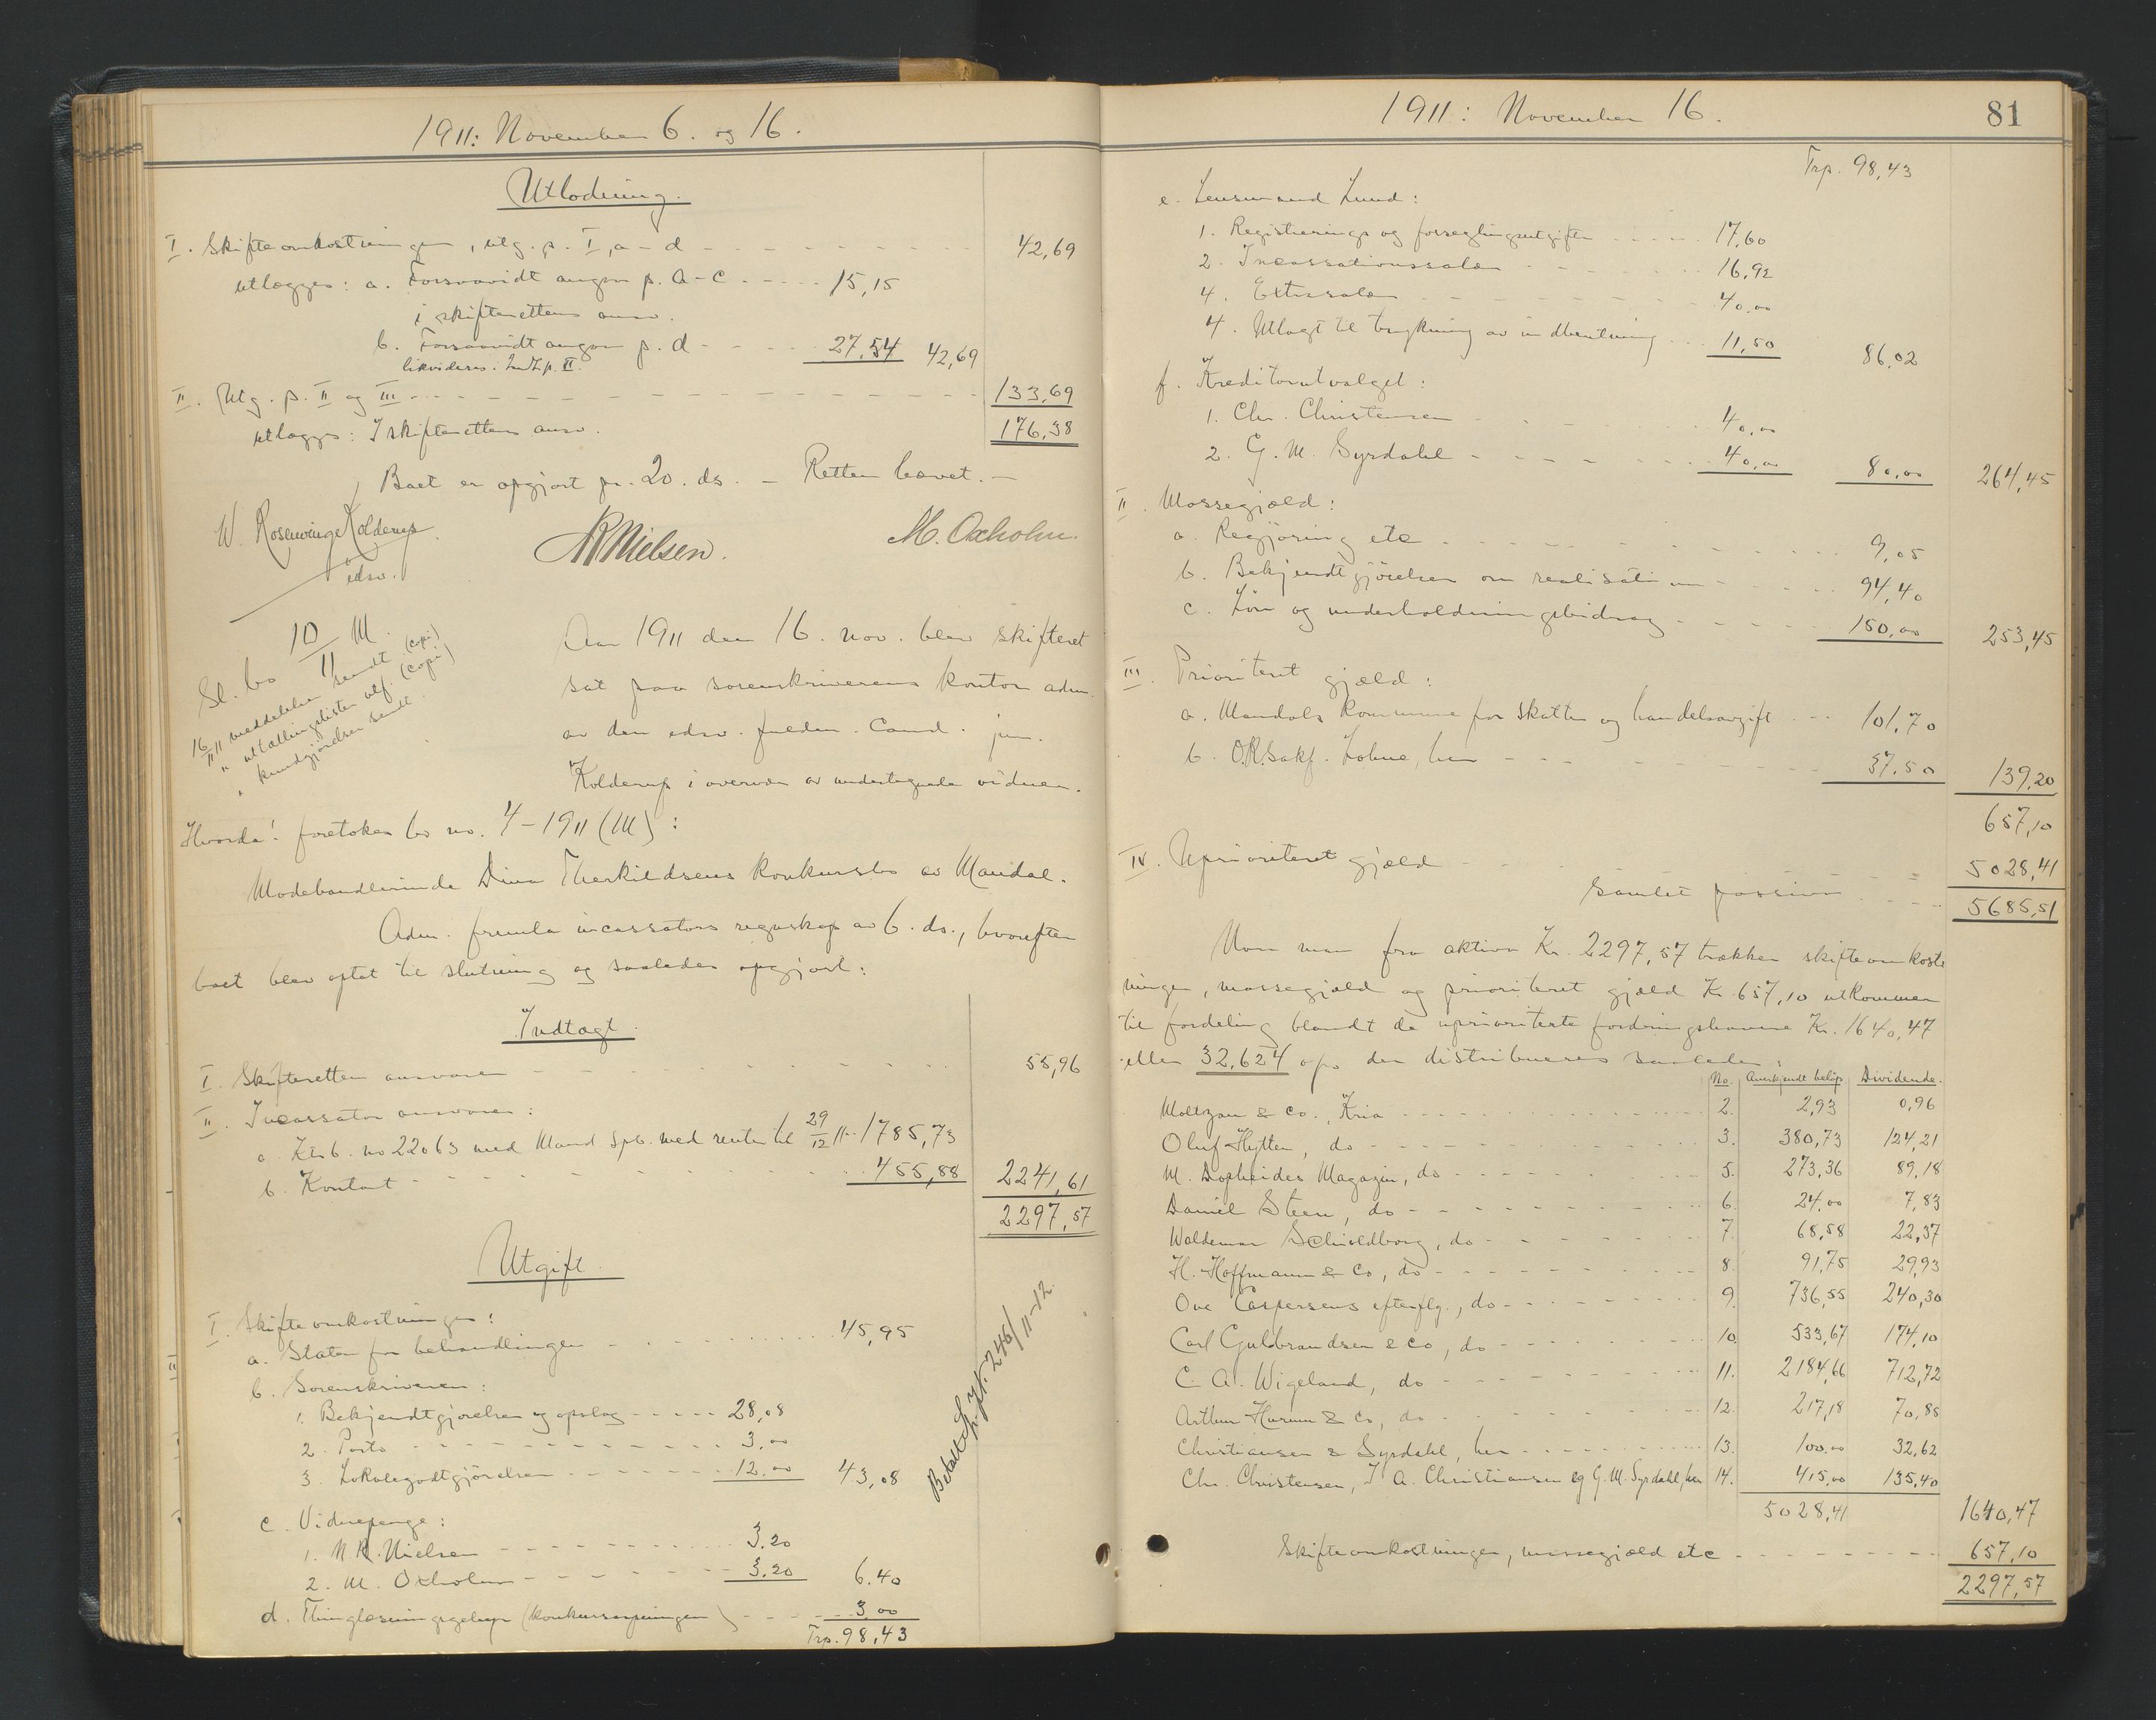 1911: November 6. og 16.
Utlodning.
I. Skifteomkostninger, utg. p. I, a-d 42,69
utlægges: a. Forsaavidt angaar p. a-c 15,15
i skifterettens ansv.
b. Forsaavidt angaar p. d 27,54 42,69
likvideres. Indt. p. II.
II. Utg. p. II og III 133,69
utlægges: I skifterettens ansv. 176,38
Boet er opgjort pr. 20. ds. - Retten hævet. -
W. Rosenvinge Kolderup
edsv.
NKNielsen. M. Oxholm.
Sl. bo 10/11 M.
16/11 11 meddelelse sendt (copi)
" uttællingslisten utf. (copi)
" kundgjørelsen sendt.
Aar 1911 den 16. nov. blev skifteret
sat paa sorenskriverens kontor adm.
av den edsv. fuldm. cand. jur.
Kolderup i overvær av undertegnede vidner.
Hvorda! foretokes bo no. 4-1911 (M):
Modehandlerinde Dina Therkildsens konkursbo av Mandal.
Adm. fremla incassators regnskap av 6. ds., hvorefter
boet blev optat til slutning og saaledes opgjort:
Indtægt.
I. Skifteretten ansvarer 55,96
II. Incassator ansvarer:
a. Ktrb. no 22063 med Mand. Spb. med renter til 29/12 11 1785,73
b. Kontant 455,88 2241,61
2297,57
Utgift.
I. Skifteomkostninger:
a. Staten for behandlingen 45,95
b. Sorenskriveren:
1. Bekjendtgjørelser og opslag 28,08
2. Porto 3,00
3. Lokalegodtgjørelsen 12,00 43,08
c. Vidnepenge:
1. N K. Nielsen 3,20
2. M. Oxholm 3,20 6,40
d. Thinglæsningsgebyr (konkursaapningen) 3,00
Trp. 98,43
1911: November 16. 81
Trp. 98,43
e. Lensmand Lund:
1. Registrerings og forseglingsutgifter 17,60
2. Incassationssalær 16,92
4. Extrasalær 40,00
4. Utlagt til trykning av indberetning 11,50 86,02
f. Kreditorutvalget:
1. Chr. Christensen 40,00
2. G. M. Syrdahl 40,00 80,00 264,45
II. Massegjæld:
a. Rengjøring etc 9,05
b. Bekjendtgjørelser om realisationen 94,40
c. Løn og underholdningsbidrag 150,00 253,45
III. Prioritert gjæld:
a. Mandals kommune for skatter og handelsavgift 101,70
b. O.R.Sakf. Lohne, her 37,50 139,20
657,10
IV. Uprioritert gjæld 5028,41
Samlet passiva 5685,51
Naar man fra aktiva Kr. 2297,57 trækker skifteomkost-
ninger, massegjæld og prioritert gjæld Kr 657,10 utkommer
til fordeling blandt de uprioriterte fordringshavere Kr. 1640,47
eller 32,624 op. der distribueres saaledes:
No. Anerkjendt beløp Dividende.
Moltzau & Co., Kria 2. 2,93 0,96
Oluf Hytten, do 3. 380,73 124,21
M. Dopheides Magazin, do 5. 273,36 89,18
Daniel Steen, do 6. 24,00 7,83
Waldemar Schioldborg, do 7. 68,58 22,37
H. Hoffmann & Co, do 8. 91,75 29,93
Ove Caspersens efterflg., do 9. 736,55 240,30
Carl Gulbrandsen & Co, do 10. 533,67 174,10
C. A. Wigeland, do 11. 2184,66 712,72
Arthur Hurum & Co, do 12. 217,18 70,85
Christiansen & Syrdahl, her 13. 100,00 32,62
Chr. Christensen, I. A. Christiansen og G. M. Syrdahl, her 14. 415,00 135,40
5028,41 1640,47
Skifteomkostninger, massegjæld etc 657,10
2297,57